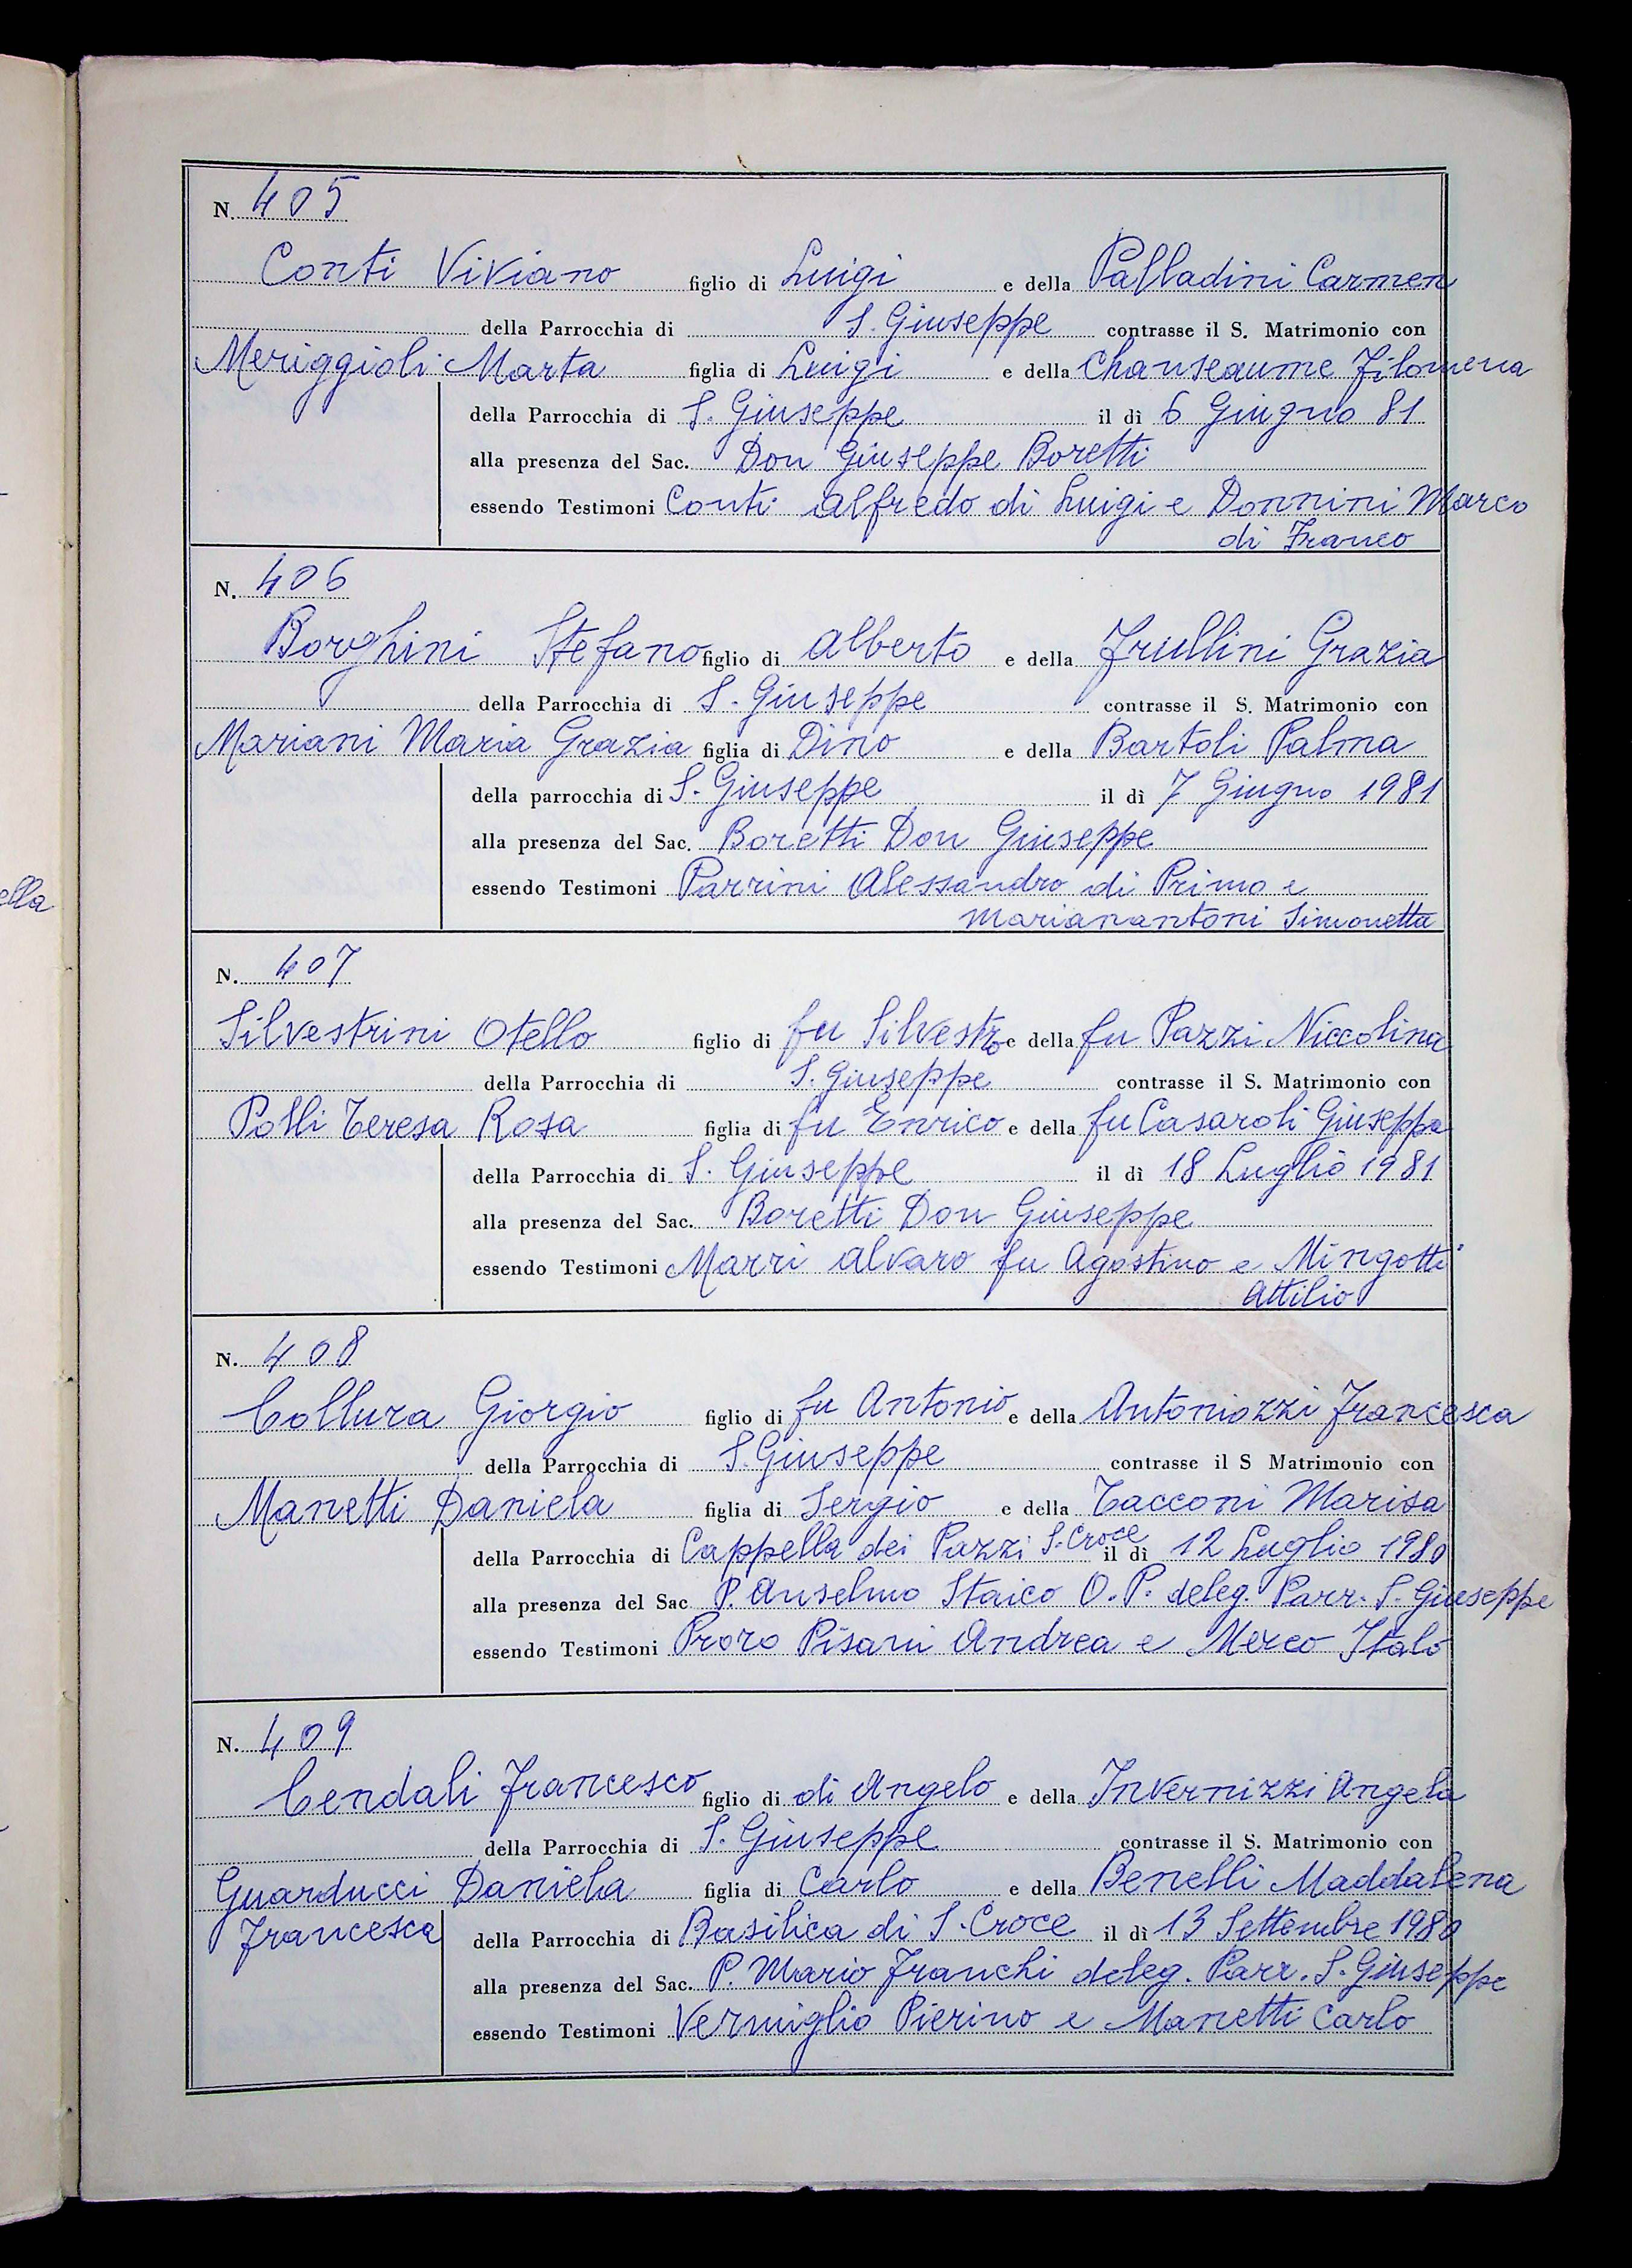 N. 405
Conti Viviano figlio di Luigi e della Palladini Carmen
della Parrocchia di S. Giuseppe contrasse il S. Matrimonio con
Meriggioli Marta figlia di Luigi e della Chanseaume Filomena
della Parrocchia di S. Giuseppe il dì 6 Giugno 81
alla presenza del Sac. Don Giuseppe Boretti
essendo Testimoni Conti Alfredo di Luigi e Donnini Marco
di Franco
N. 406
Borghini Stefano figlio di Alberto e della Frullini Grazia
della Parrocchia di S. Giuseppe contrasse il S. Matrimonio con
Mariani Maria Grazia figlia di Dino e della Bartoli Palma
della parrocchia di S. Giuseppe il dì 7 Giugno 1981
alla presenza del Sac. Boretti Don Giuseppe
essendo Testimoni Parrini Alessandro di Primo e
Marianantoni Simonetta
N. 407
Silvestrini Otello figlio di fu Silvestro e della fu Pazzi Niccolina
della Parrocchia di S. Giuseppe contrasse il S. Matrimonio con
Polli Teresa Rosa figlia di fu Enrico e della fu Casaroli Giuseppa
della Parrocchia di S. Giuseppe il dì 18 Luglio 1981
alla presenza del Sac. Boretti Don Giuseppe
essendo Testimoni Marri Alvaro fu Agostino e Mingotti
Attilio
N. 408
Collura Giorgio figlio di fu Antonio e della Antoniozzi Francesca
della Parrocchia di S. Giuseppe contrasse il S Matrimonio con
Manetti Daniela figlia di Sergio e della Tacconi Marisa
della Parrocchia di Cappella dei Pazzi S. Croce il dì 12 Luglio 1980
alla presenza del Sac P. Anselmo Staico O.P. deleg. Parr. S. Giuseppe
essendo Testimoni Proro Pisani Andrea e Merco Italo
N. 409
Cendali Francesco figlio di di Angelo e della Invernizzi Angela
della Parrocchia di S. Giuseppe contrasse il S. Matrimonio con
Guarducci Daniela figlia di Carlo e della Benelli Maddalena
Francesca della Parrocchia di Basilica di S. Croce il dì 13 Settembre 1980
alla presenza del Sac. P. Mario Franchi deleg. Parr. S. Giuseppe
essendo Testimoni Vermiglio Pierino e Manetti Carlo